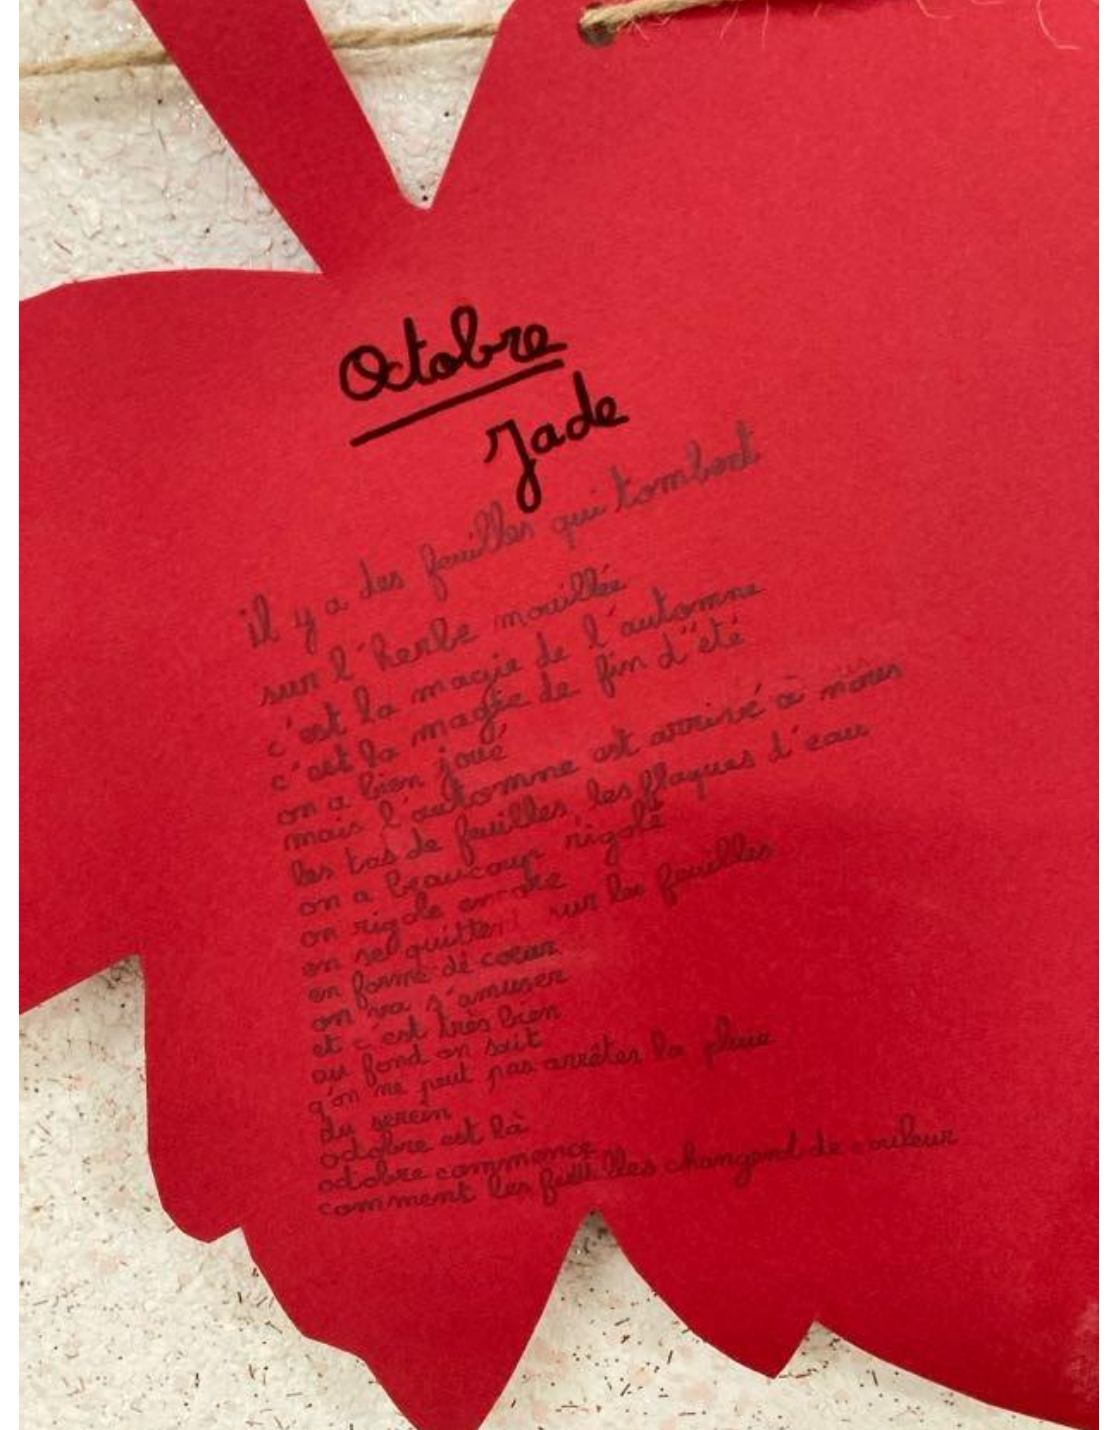 Octobre
Jade
il y a des feuilles qui tombent
sur l'herbe mouillée
c'est la magie de l'automne
c'est la magie de fin d'été
on a bien joué
mais l'automne est arrivé à nous
les tas de feuilles, les flaques d'eau
on a beaucoup rigolé
on rigole encore
on se quitte sur les feuilles
en forme de coeur
on va s'amuser
et c'est très bien
au fond on sait
q'on ne peut pas arrêter la pluie
du serein
octobre est là
octobre commence
comment les feuilles changent de couleur